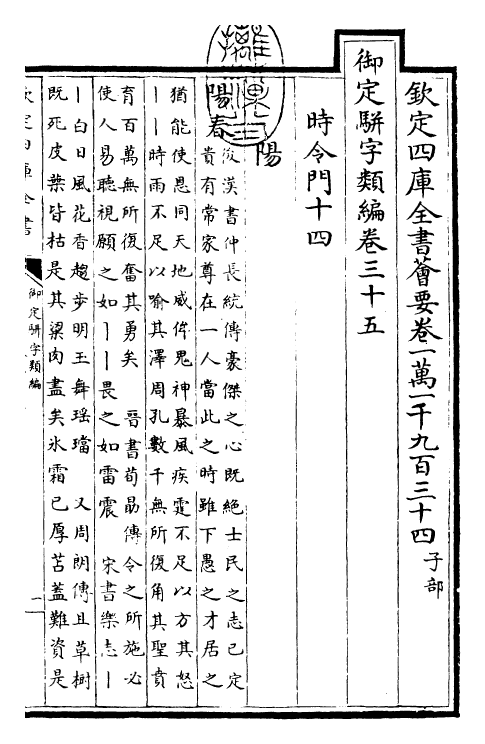 欽定四庫全書薈要卷一萬一千九百三十四 子部
御定駢字類編卷三十五
時令門十四
陽
陽春 後漢書仲長統傳豪傑之心既絕士民之志已定
貴有常家尊在一人當此之時雖下愚之才居之
猶能使恩同天地威侔鬼神暴風疾霆不足以方其怒
丨丨時雨不足以喻其澤周孔數千無所復角其聖賁
育百萬無所復奮其勇矣 晉書荀勗傳令之所施必
使人易聽視願之如丨丨畏之如雷震 宋書樂志丨
丨白日風花香趨步明玉舞瑤璫 又周朗傳且草樹
既死皮葉皆枯是其梁肉盡矣氷霜已厚苫蓋難資是
欽定四庫全書
御定駢字類編
一